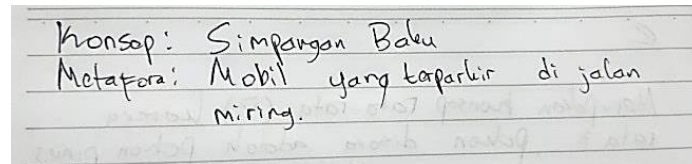 Konsep: Simpangan Baku
Metafora: Mobil yang terparkir di jalan
miring.